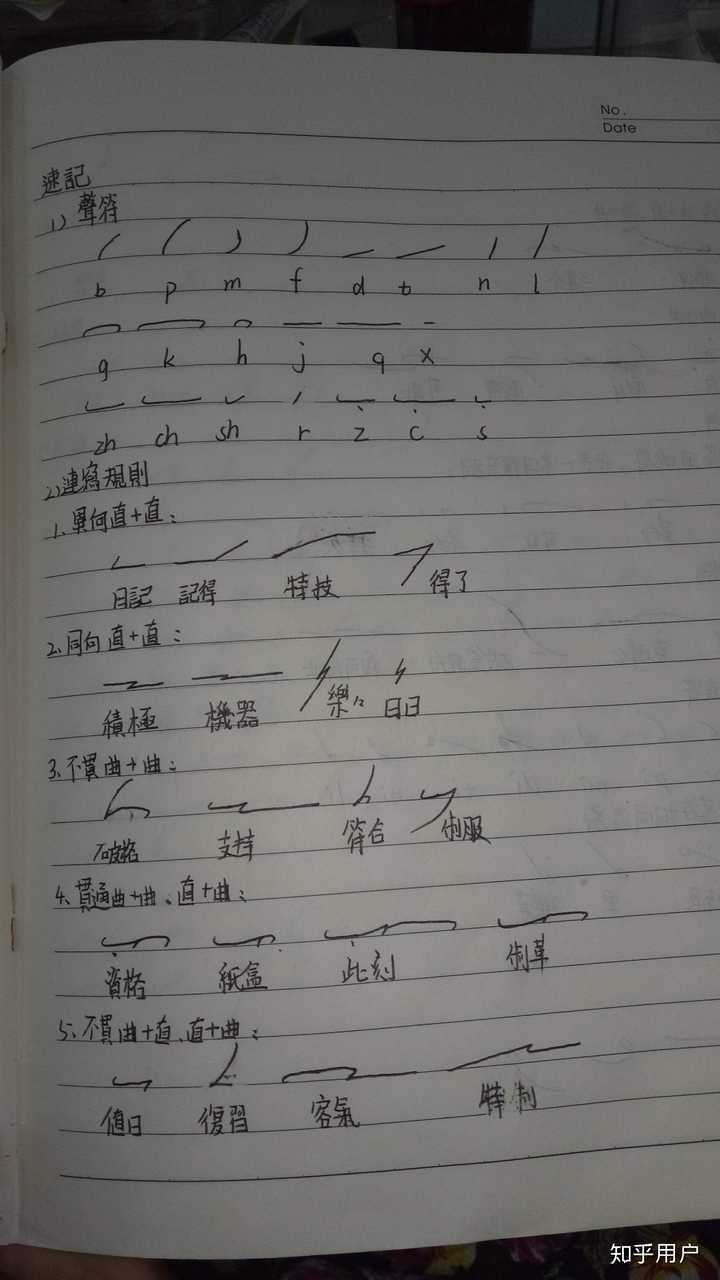 No.
Date
速記
1) 聲符
b p m f d t n l
g k h j q x
zh ch sh r z c s
2) 連寫規則
1. 異向直+直:
日記 記得 特技 得了
2. 同向直+直:
積極 機器 樂々 日日
3. 不貫曲+曲:
破格 支持 符合 制服
4. 貫通曲+曲、直+曲:
資格 紙盒 此刻 制革
5. 不貫曲+直、直+曲:
值日 復習 客氣 特制
知乎用户